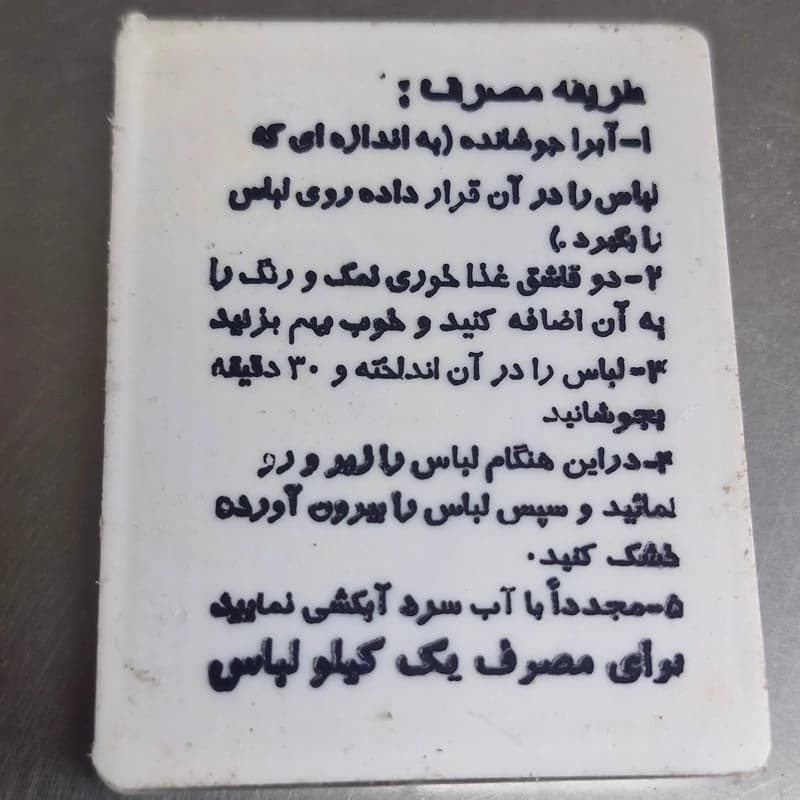 طریقه مصرف :
۱-آبرا جوشانده (به اندازه ای که
لباس را در آن قرار داده روی لباس
را بگیرد.)
۲-دو قاشق غذا خوری نمک و رنگ را
به آن اضافه کنید و خوب بهم بزنید
۳-لباس را در آن انداخته و ۳۰ دقیقه
بجوشانید
۴-دراین هنگام لباس را زیر و رو
نمائید و سپس لباس را بیرون آورده
خشک کنید.
۵-مجدداً با آب سرد آبکشی نمایید
برای مصرف یک کیلو لباس